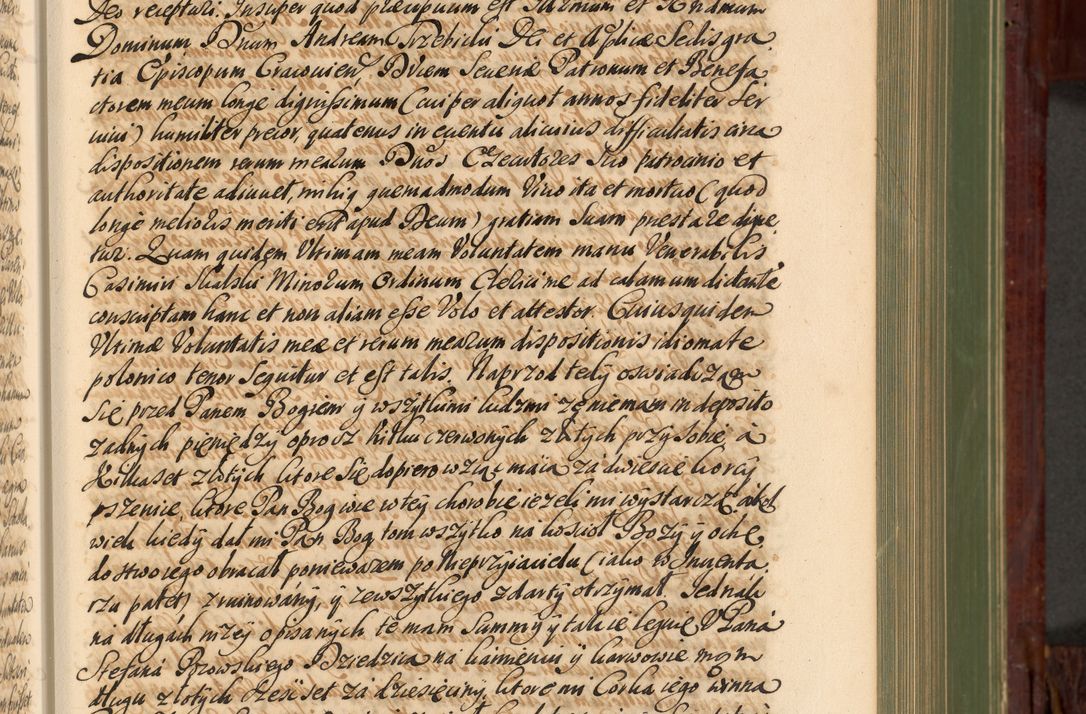 Deo recepturi. Insuper quod præcipuum est Illrmum et Rndmum
Dominum Dnum Andream Trzebicki Dei et Aplicæ Sedis gra
tia Episcopum Cracouien, Ducem Seueriæ Patronum et Benefa
ctorem meum longe dignissimum (cui per aliquot annos fideliter ser
uiui) humiliter precor, quatenus in euentu alicuius difficultatis circa
dispositionem rerum mearum Dnos Executores suo patrocinio et
authoritate adiuuet, mihiq quemadmodum Viuo ita et mortuo (quod
longe melioris meriti erit apud Deum) gratiam suam præstare digne
tur. Quam quidem Vltimam meam Voluntatem manu Venerabilis
Casimiri Skalski Minorum Ordinum Clerici me ad calamum dictante
conscriptam hanc et non aliam esse Volo et attestor. Cuius quidem
Vltimæ Voluntatis meæ et rerum mearum dispositionis idiomate
polonico tenor sequitur et est talis. Naprzod tedÿ oswiadczam
się przed Panem Bogiem ÿ wszytkimi ludzmi ze nie mam in deposito
zadnÿch pieniędzÿ oprocz kilku czerwonÿch złotÿch przÿ sobie, á
kilkaset złotÿch ktore się dopiero wziąc maia zá dwiescie korcÿ
pszenice, ktore Pan Bog wie w teÿ chorobie iezeli mi wÿstarczą, álbo
wiem kiedÿ dał mi Pan Bog tom wszÿtko ná kosciół Bozÿ ÿ ochę
dostwo iego obracał poniewazem po Nieprzÿiacielu (iako w Inuenta
rzu patet) zruinowanÿ, ÿ ze wszÿtkiego zdartÿ otrzÿmał. Jednák
na długách nizeÿ opisanÿch te mam summÿ ÿ takie leguię V Páná
Stefaná Dzowskiego Dziedzica ná kámieniu ÿ karwowie mam
długu złotÿch sześćset zá dziesięcinÿ, ktore mi Corka iego winna